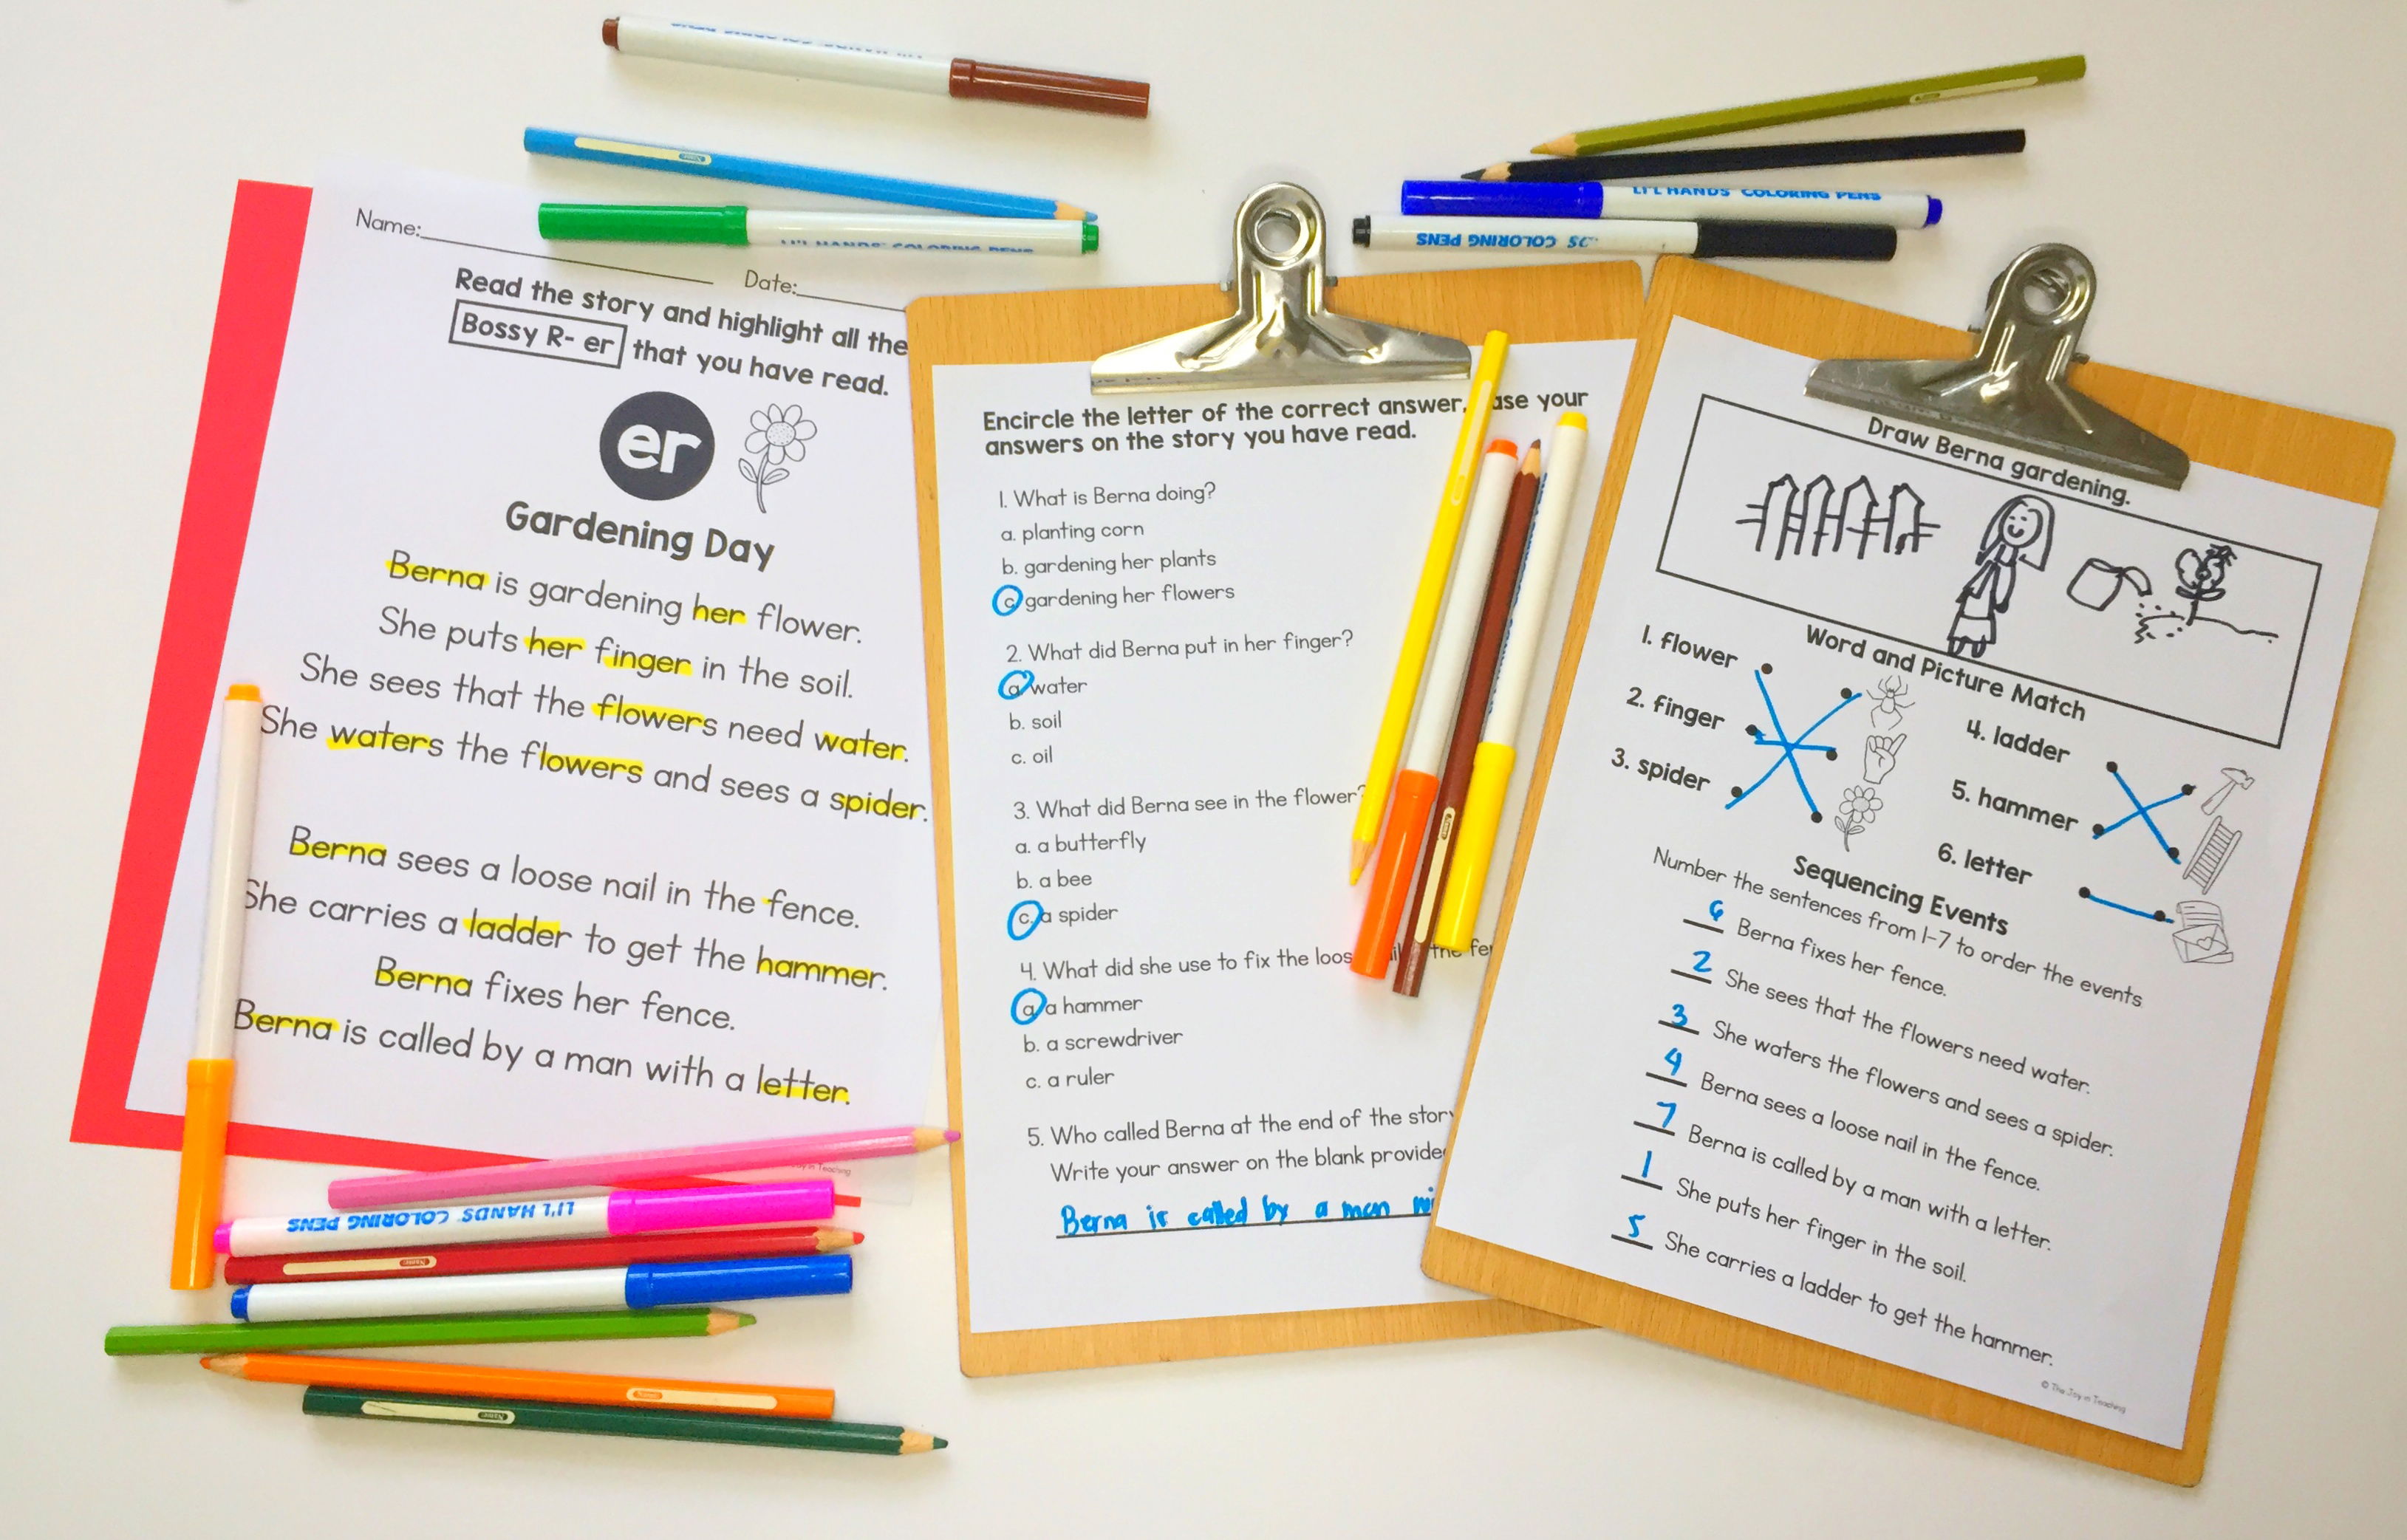 Name:
Date:
Read the story and highlight all the
Bossy R- er that you have read.
er
Gardening Day
Berna is gardening her flower.
She puts her finger in the soil.
She sees that the flowers need water.
She waters the flowers and sees a spider.
Berna sees a loose nail in the fence.
She carries a ladder to get the hammer.
Berna fixes her fence.
Berna is called by a man with a letter.
Joy in Teaching
Encircle the letter of the correct answer. ase your
answers on the story you have read.
1. What is Berna doing?
a. planting corn
b. gardening her plants
c. gardening her flowers
2. What did Berna put in her finger?
a. water
b. soil
c. oil
3. What did Berna see in the flower?
a. a butterfly
b. a bee
c. a spider
4. What did she use to fix the loos the fe
a. a hammer
b. a screwdriver
c. a ruler
5. Who called Berna at the end of the stor
Write your answer on the blank provide
Berna is called by a man wi
Draw Berna gardening.
Word and Picture Match
1. flower
2. finger
3. spider
4. ladder
5. hammer
6. letter
Sequencing Events
Number the sentences from 1-7 to order the events
6 Berna fixes her fence.
2 She sees that the flowers need water.
3 She waters the flowers and sees a spider.
4 Berna sees a loose nail in the fence.
7 Berna is called by a man with a letter.
1 She puts her finger in the soil.
5 She carries a ladder to get the hammer.
© The Joy in Teaching
LI'L HANDS' COLORING PENS
LI'L HANDS' COLORING PENS
COLORING PENS
LI'L HANDS' COLORING PENS